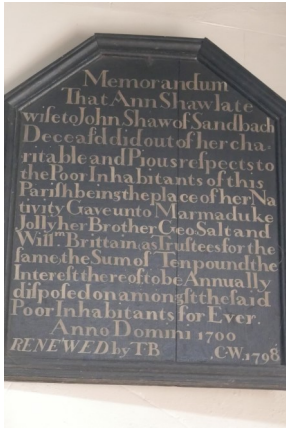 Memorandum
That Ann Shaw late
wife to John Shaw of Sandbach
Deceaſd did out of her cha
ritable and Pious reſpects to
the Poor Inhabitants of this
Pariſh being the place of her Na
tivity Gave unto Marmaduke
Jolly her Brother Geo Salt and
Willm Brittain as Truſtees for the
ſame, the Sum of Ten pound the
Intereſt thereof to be Annually
diſpoſed on amongſt the ſaid
Poor Inhabitants for Ever.
Anno Domini 1700
RENEWED by TB C·W. 1798